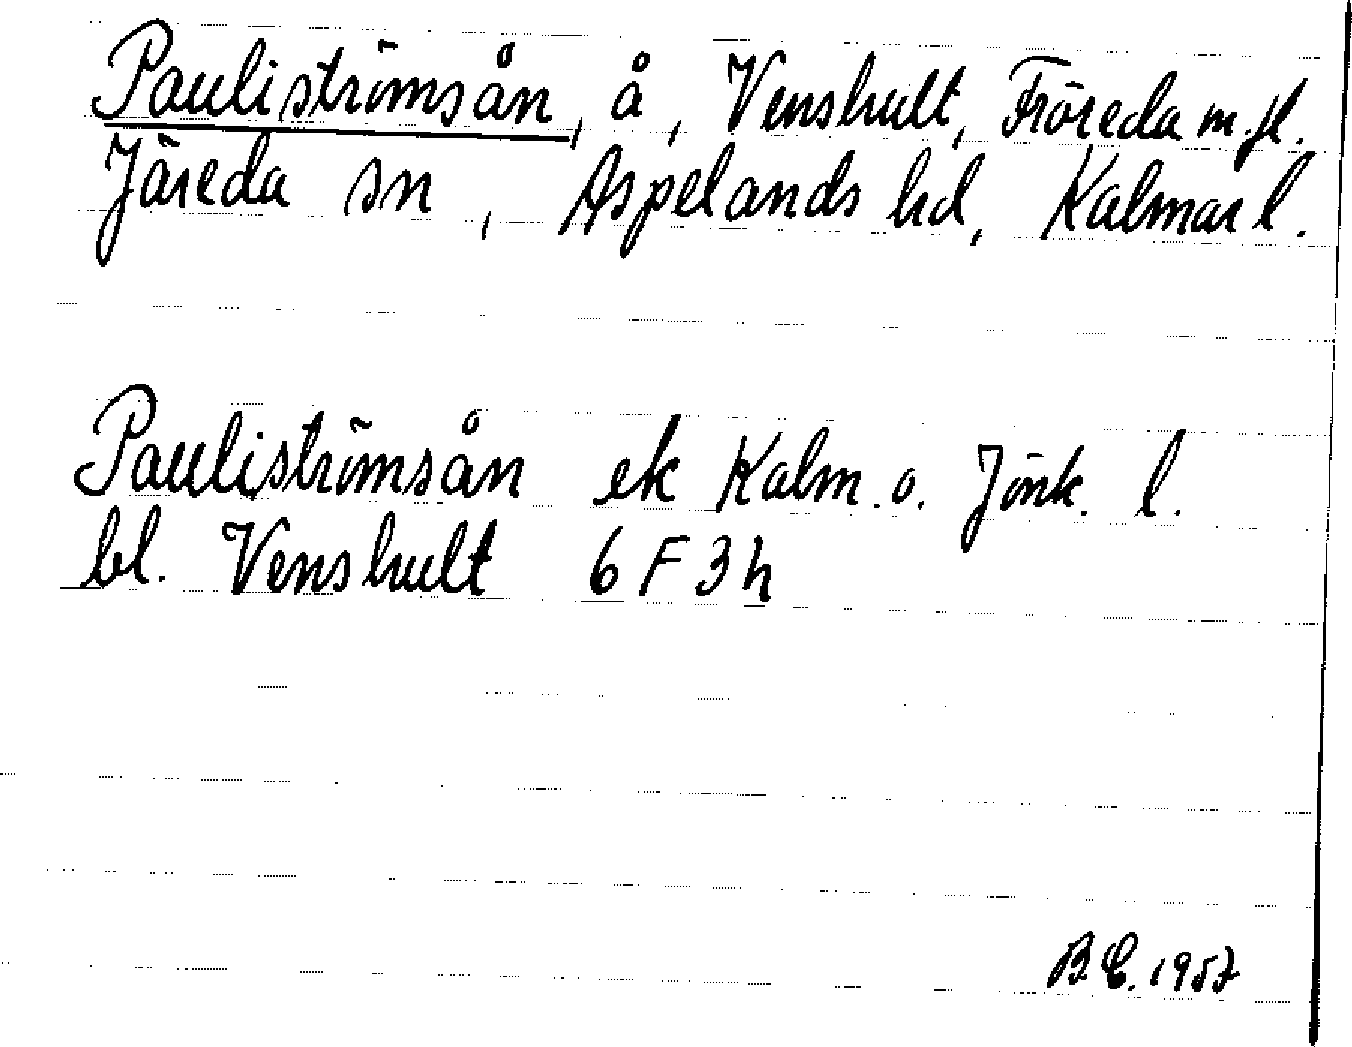 Pauliströmsån, å, Venshult, Fröreda m.fl.
Järeda sn, Aspelands hd, Kalmar l.
Pauliströmsån ek Kalm. o. Jönk. l.
bl. Venshult 6 F 3 h
B E. 1957